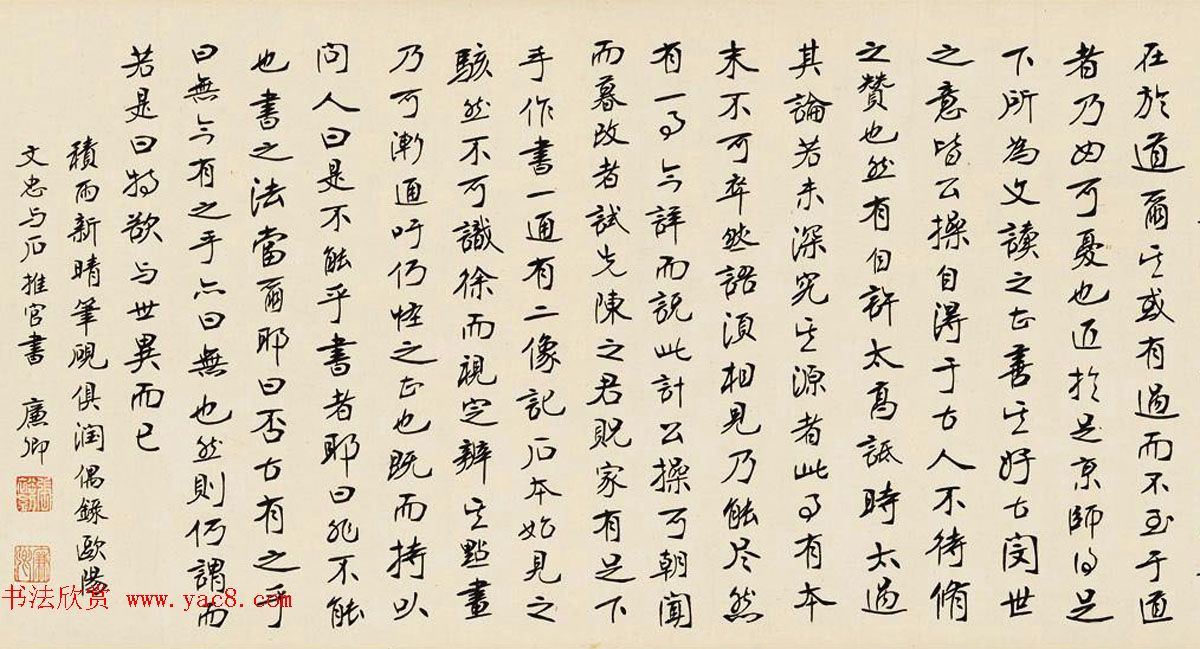 在於道爾其或有過而不至于道
者乃可憂也近於足京師得足
下所為文讀之甚善其好古閔世
之意皆公操自得于古人不待脩
之贊也然有自許太高詆時太過
其論若未深究其源者此事有本
末不可卒然語須相見乃能尽然
有一事今詳而説此計公操可朝聞
而暮改者試先陳之君貺家有足下
手作書一通有二像記石本始見之
駭然不可識徐而視定辨其點畫
乃可漸通吁何怪之甚也既而持以
問人曰是不能乎書者耶曰非不能
也書之法當爾耶曰否古有之乎
曰無今有之乎亦曰無也然則何謂而
若是曰特欲与世異而已
積雨新晴筆硯俱潤偶錄歐陽
文忠与石推官書 廉卿
书法欣赏 www.yac8.com